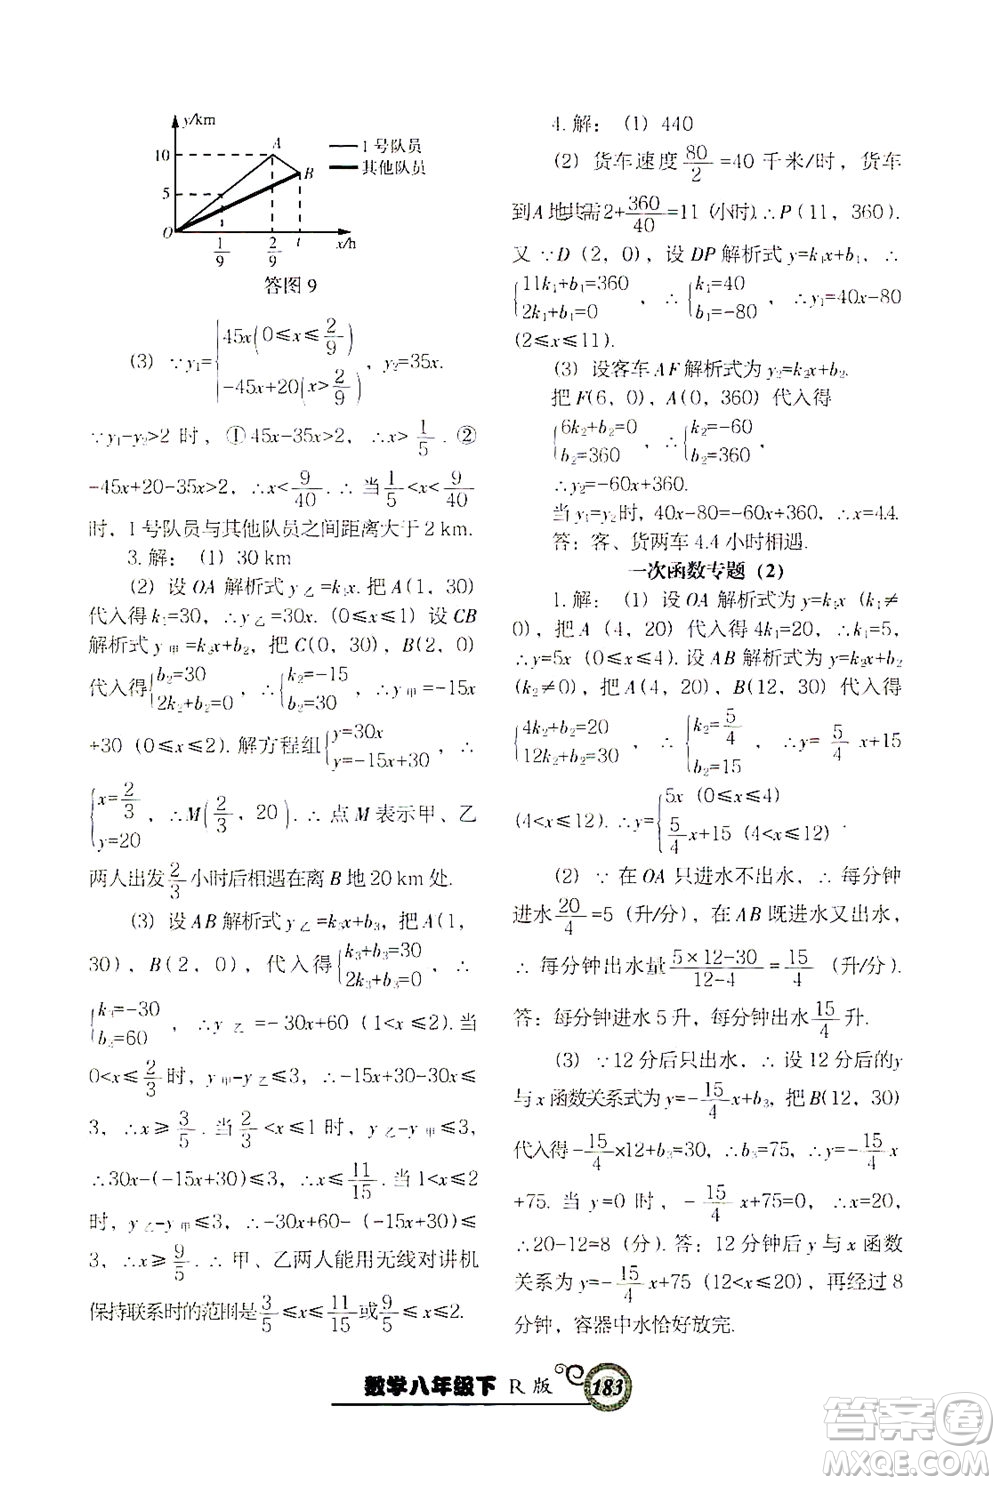 y/km
A
1 号队员
10
B
其他队员
5
O
1/9
2/9
t
x/h
答图 9
(3) ∵y₁={45x(0≤x≤2/9) -45x+20(x>2/9), y₂=35x.
∵y₁-y₂>2 时, ①45x-35x>2, ∴x>1/5. ②
-45x+20-35x>2, ∴x<9/40. ∴ 当1/5<x<9/40
时, 1 号队员与其他队员之间距离大于 2 km.
3. 解: (1) 30 km
(2) 设 OA 解析式 y乙=k₁x. 把 A(1, 30)
代入得 k₁=30, ∴y乙=30x. (0≤x≤1) 设 CB
解析式 y甲=k₂x+b₂, 把 C(0, 30), B(2, 0)
代入得{b₂=30 2k₂+b₂=0, ∴{k₂=-15 b₂=30. ∴y甲=-15x
+30 (0≤x≤2). 解方程组{y=30x y=-15x+30, ∴
{x=2/3 y=20, ∴M(2/3, 20). ∴ 点 M 表示甲、乙
两人出发2/3小时后相遇在离 B 地 20 km 处.
(3) 设 AB 解析式 y乙=k₃x+b₃, 把 A(1,
30), B(2, 0), 代入得{k₃+b₃=30 2k₃+b₃=0, ∴
{k₃=-30 b₃=60, ∴y乙=-30x+60 (1<x≤2). 当
0<x≤2/3时, y甲-y乙≤3, ∴-15x+30-30x≤
3, ∴x≥3/5. 当2/3<x≤1 时, y乙-y甲≤3,
∴30x-(-15x+30)≤3, ∴x≤11/15. 当 1<x≤2
时, y乙-y甲≤3, ∴-30x+60-(-15x+30)≤
3, ∴x≥9/5. ∴甲、乙两人能用无线对讲机
保持联系时的范围是3/5≤x≤11/15或9/5≤x≤2.
4. 解: (1) 440
(2) 货车速度80/2=40 千米/时, 货车
到 A 地共需 2+360/40=11 (小时). ∴P (11, 360).
又 ∵D (2, 0), 设 DP 解析式 y=k₁x+b₁, ∴
{11k₁+b₁=360 2k₁+b₁=0, ∴{k₁=40 b₁=-80, ∴y₁=40x-80
(2≤x≤11).
(3) 设客车 AF 解析式为 y₂=k₂x+b₂.
把 F(6, 0), A(0, 360) 代入得
{6k₂+b₂=0 b₂=360, ∴{k₂=-60 b₂=360,
∴y₂=-60x+360.
当 y₁=y₂时, 40x-80=-60x+360, ∴x=4.4.
答: 客、货两车 4.4 小时相遇.
一次函数专题 (2)
1. 解: (1) 设 OA 解析式为 y=k₁x (k₁≠
0), 把 A (4, 20) 代入得 4k₁=20, ∴k₁=5,
∴y=5x (0≤x≤4). 设 AB 解析式为 y=k₂x+b₂
(k₂≠0), 把 A(4, 20), B(12, 30) 代入得
{4k₂+b₂=20 12k₂+b₂=30, ∴{k₂=5/4 b₂=15, ∴y=5/4x+15
(4<x≤12). ∴y={5x (0≤x≤4) 5/4x+15 (4<x≤12).
(2) ∵ 在 OA 只进水不出水, ∴ 每分钟
进水20/4=5 (升/分), 在 AB 既进水又出水,
∴ 每分钟出水量(5×12-30)/(12-4)=15/4 (升/分).
答: 每分钟进水 5 升, 每分钟出水15/4升.
(3) ∵12 分后只出水, ∴ 设 12 分后的y
与 x 函数关系式为 y=-15/4x+b₃, 把 B(12, 30)
代入得-15/4×12+b₃=30, ∴b₃=75, ∴y=-15/4x
+75. 当 y=0 时, -15/4x+75=0, ∴x=20,
∴20-12=8 (分). 答: 12 分钟后 y 与 x 函数
关系为 y=-15/4x+75 (12<x≤20), 再经过 8
分钟, 容器中水恰好放完.
数学八年级下 R 版 183
答案圈
MXQE.COM